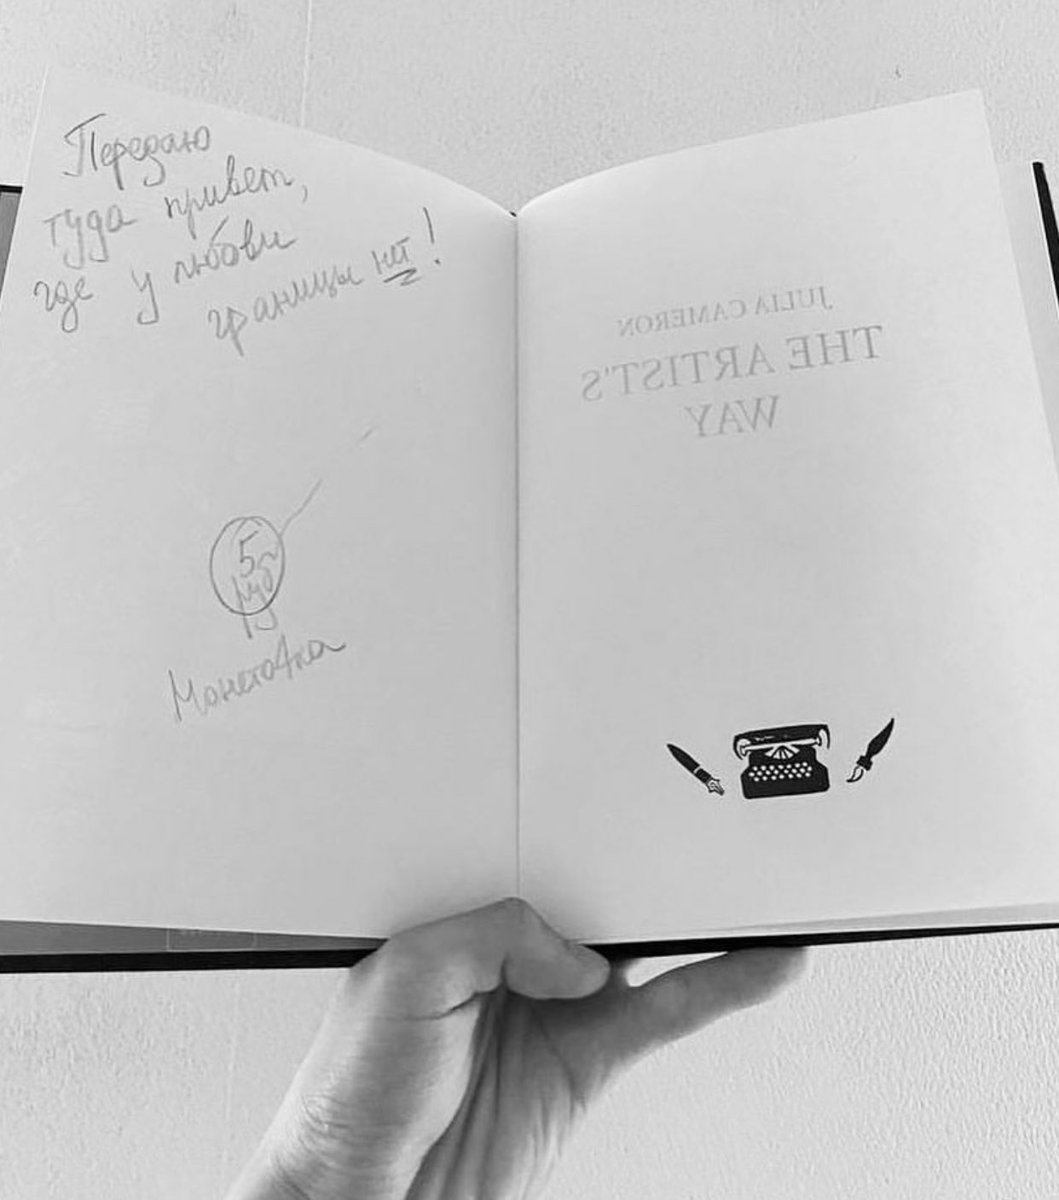 Передаю
туда привет,
где у любви
границы нет!
5
руб
Монеточка
JULIA CAMERON
THE ARTIST'S
WAY